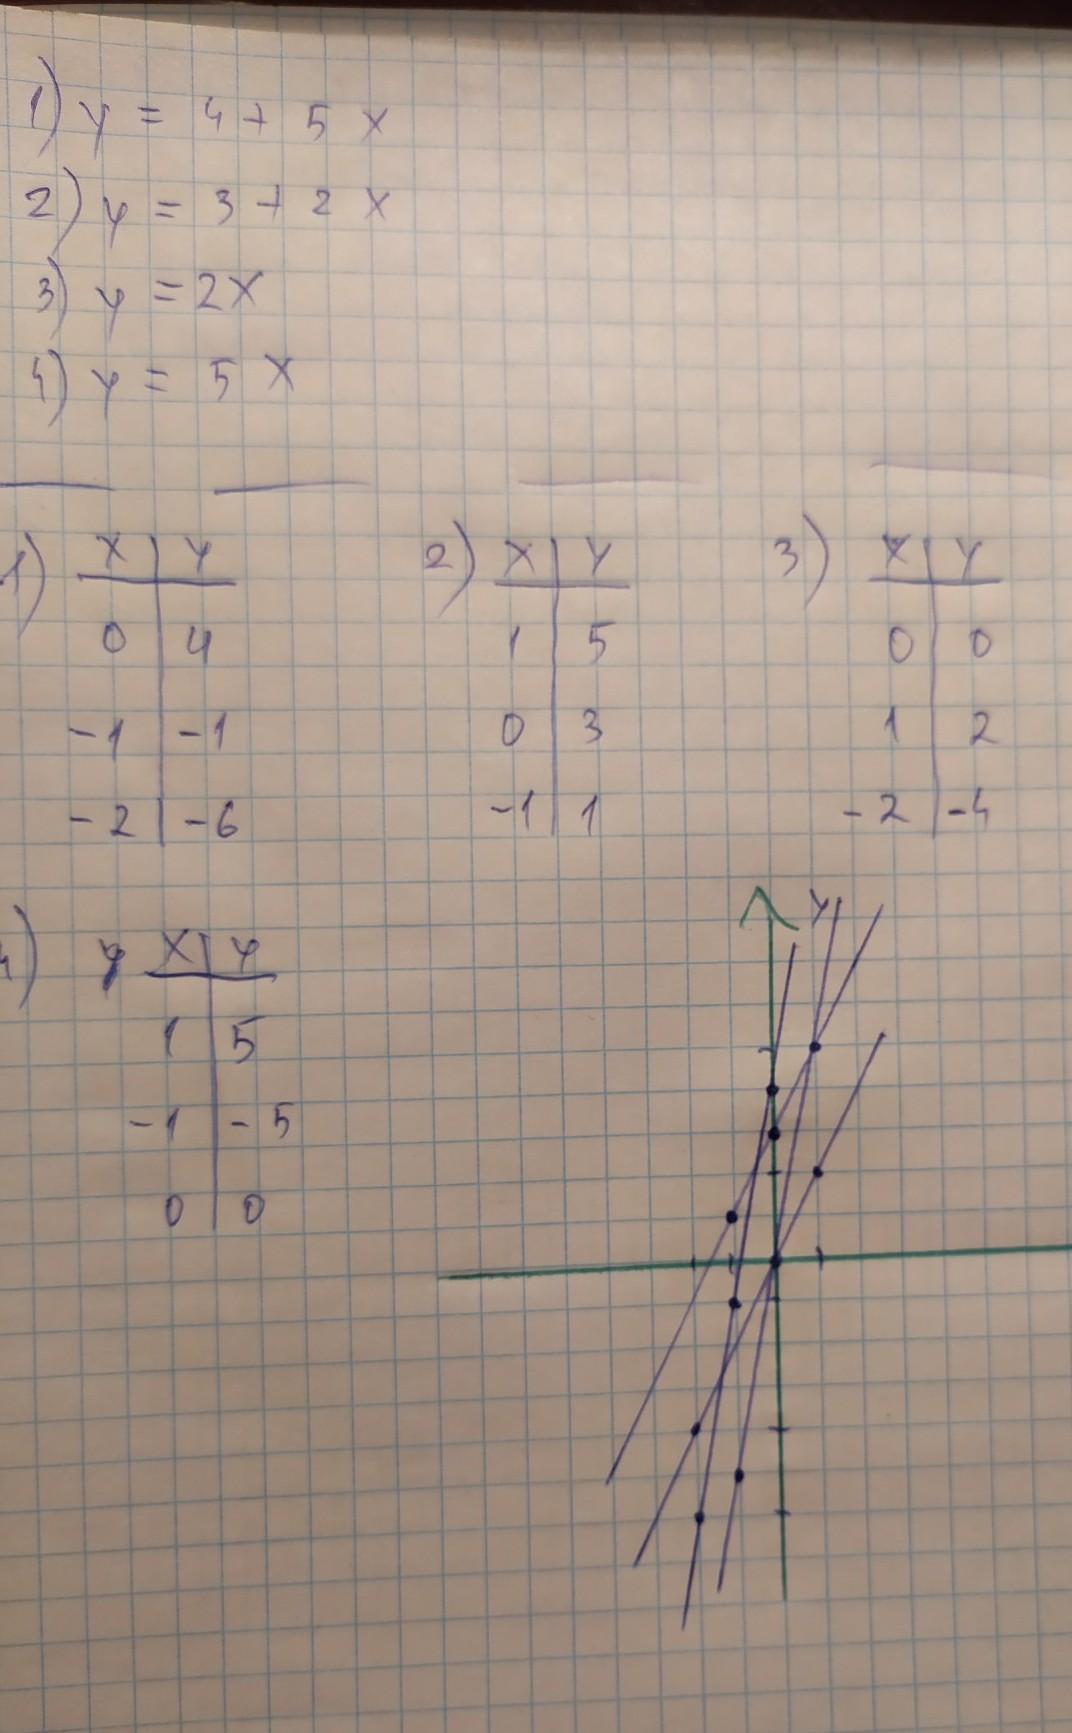 1) y = 4 + 5 x
2) y = 3 + 2 x
3) y = 2x
4) y = 5 x
1) x y 2) x y 3) x y
0 4 1 5 0 0
-1 -1 0 3 1 2
-2 -6 -1 1 -2 -4
4) x y
1 5
-1 -5
0 0
y